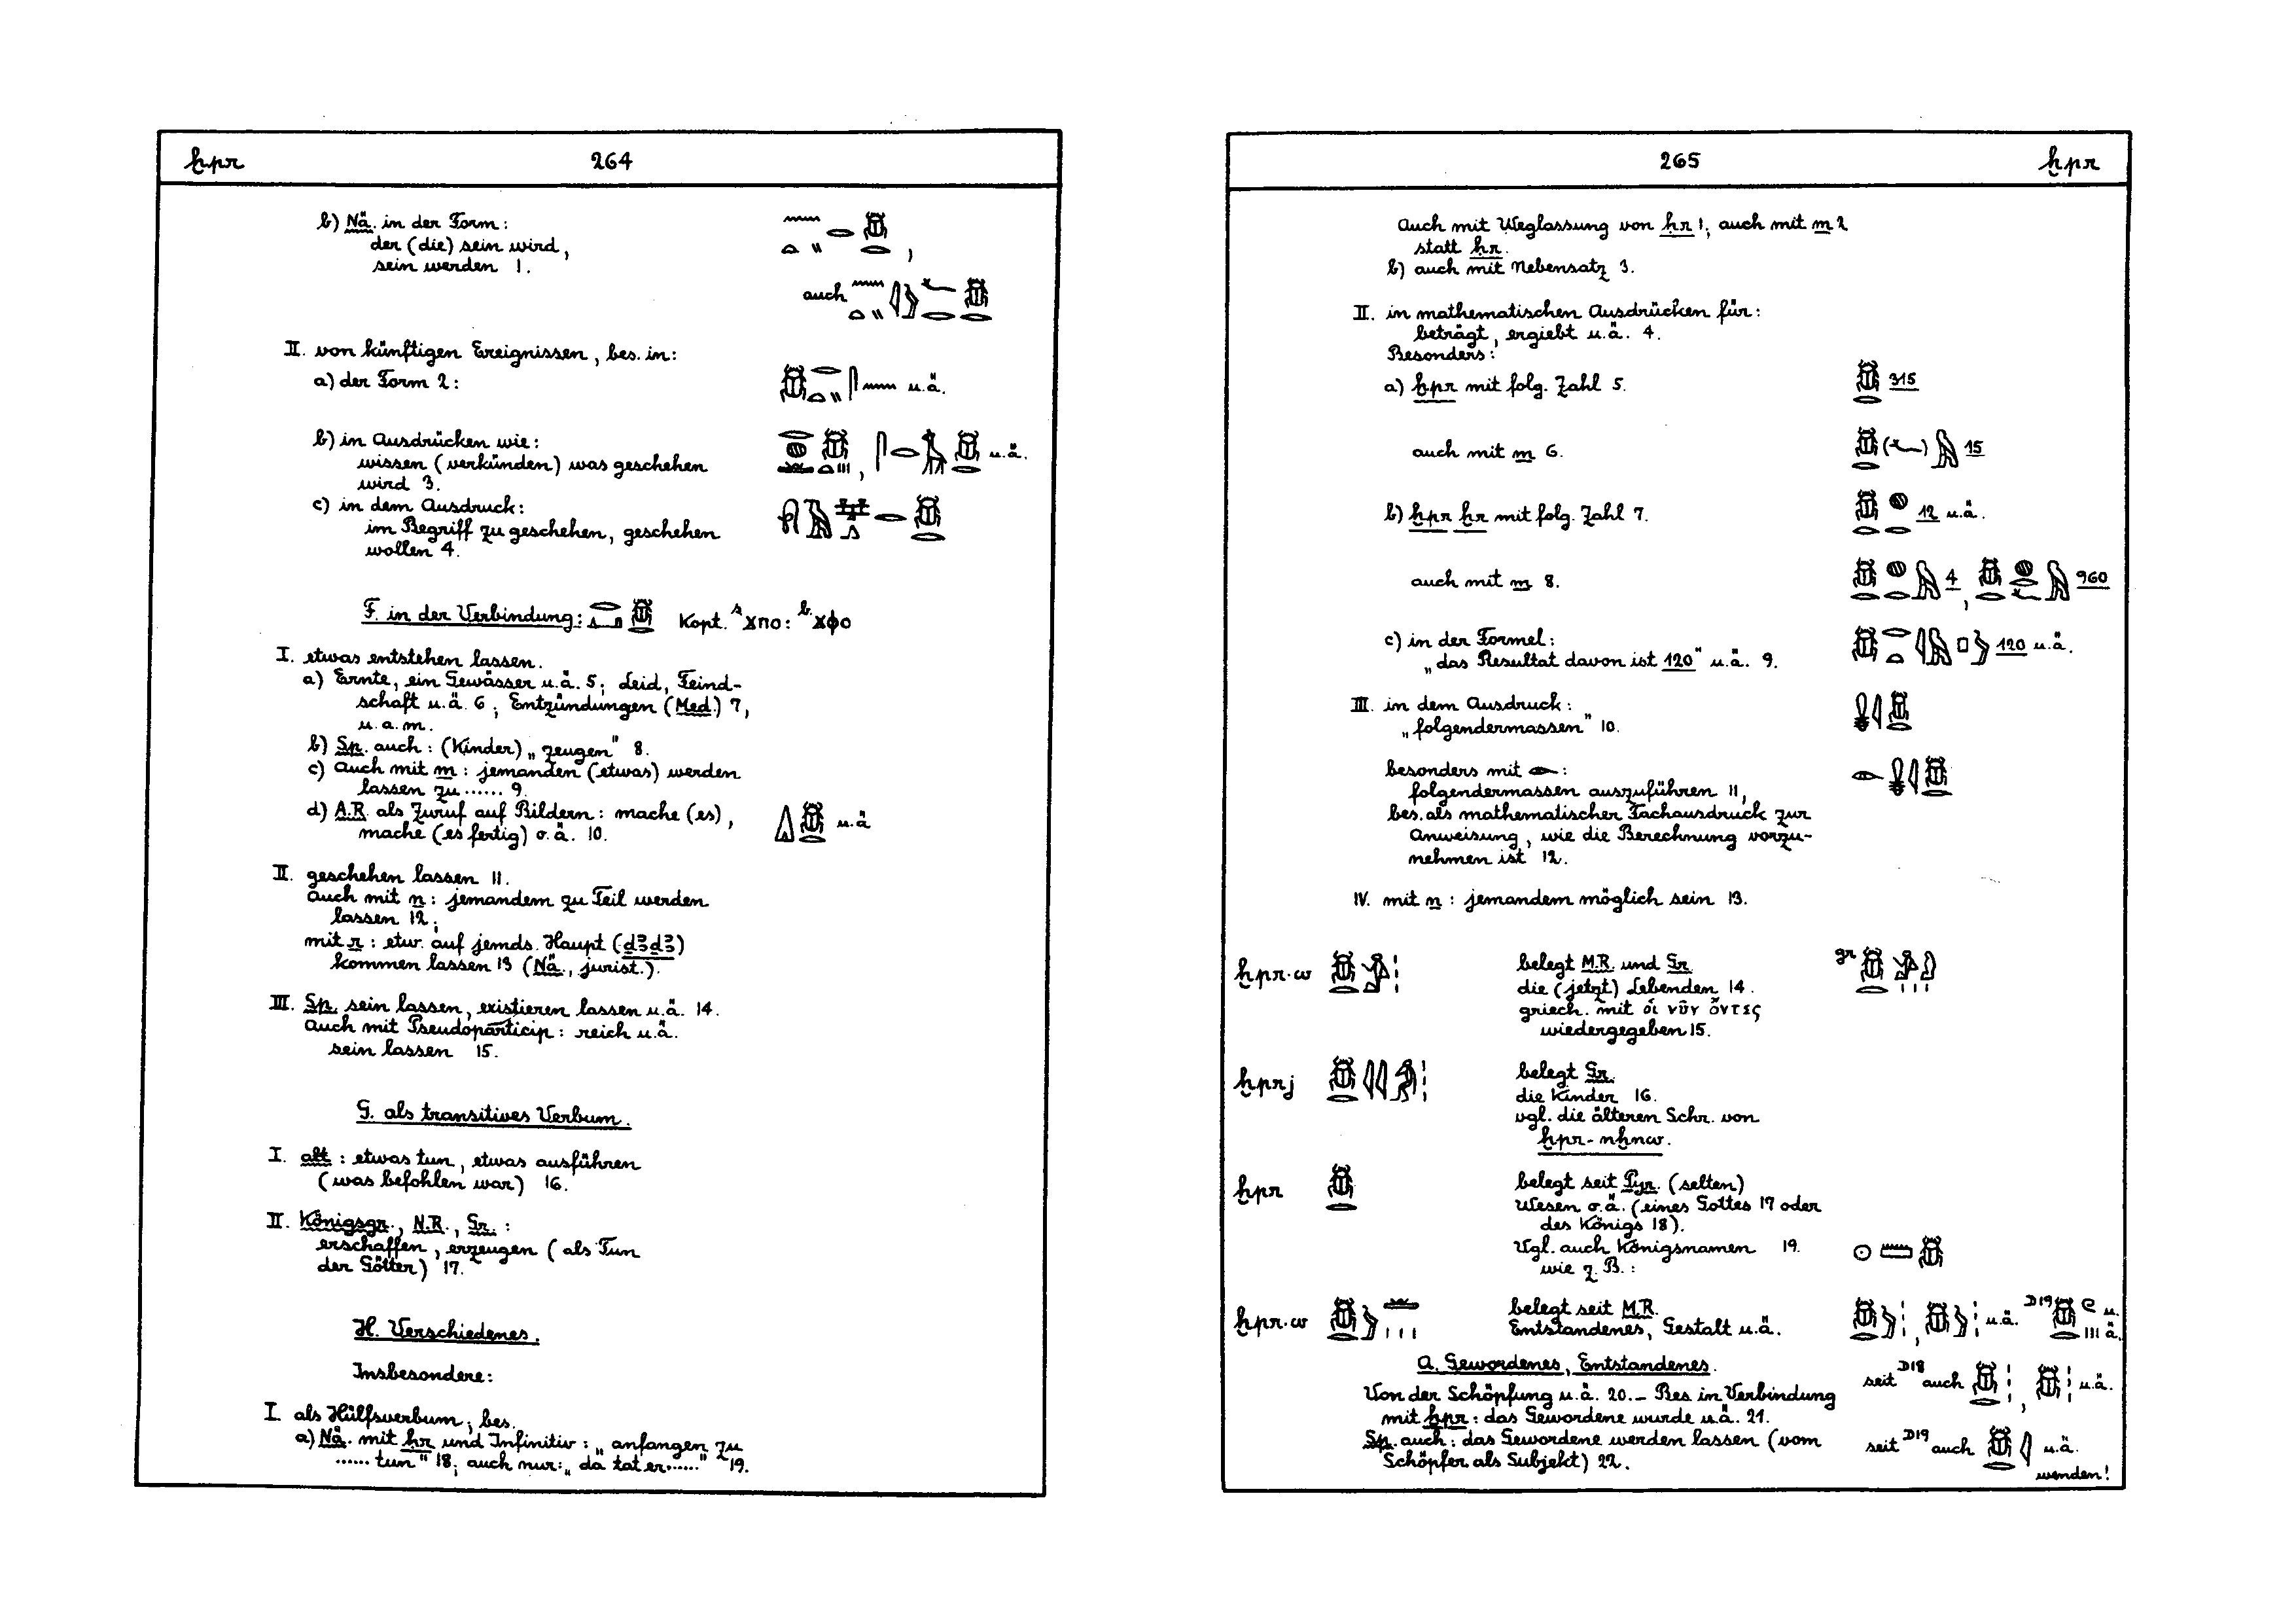 ḫpr 264
b) Nä. in der Form:
der (die) sein wird,
sein werden 1.
auch
II. von künftigen Ereignissen, bes. in:
a) der Form 2: u.ä.
b) in Ausdrücken wie: u.ä.
wissen (verkünden) was geschehen
wird 3.
c) in dem Ausdruck:
im Begriff zu geschehen, geschehen
wollen 4.
F. in der Verbindung: Kopt. s. ϫⲡⲟ: b. ϫⲫⲟ
I. etwas entstehen lassen.
a) Ernte, ein Gewässer u.ä. 5; Leid, Feind-
schaft u.ä. 6; Entzündungen (Med.) 7,
u.a.m.
b) Sp. auch: (Kinder) „zeugen" 8.
c) auch mit m: jemanden (etwas) werden
lassen zu ...... 9.
d) A.R. als Zuruf auf Bildern: mache (es), u.ä
mache (es fertig) o.ä. 10.
II. geschehen lassen 11.
auch mit n: jemandem zu Teil werden
lassen 12;
mit r: etw. auf jemds. Haupt (ḏꜣḏꜣ)
kommen lassen 13 (Nä., jurist.).
III. Sp. sein lassen, existieren lassen u.ä. 14.
Auch mit Pseudoparticip: reich u.ä.
sein lassen 15.
G. als transitives Verbum.
I. alt: etwas tun, etwas ausführen
(was befohlen war) 16.
II. Königsgr., N.R., Gr.:
erschaffen, erzeugen (als Tun
der Götter) 17.
H. Verschiedenes.
Insbesondere:
I. als Hülfsverbum; bes.
a) Nä. mit ḥr und Infinitiv: „anfangen zu
...... tun" 18; auch nur: „da tat er......" 19.
265 ḫpr
Auch mit Weglassung von ḥr 1; auch mit m 2
statt ḥr.
b) auch mit Nebensatz 3.
II. in mathematischen Ausdrücken für:
beträgt, ergiebt u.ä. 4.
Besonders:
a) ḫpr mit folg. Zahl 5. 315
auch mit m 6. 15
b) ḫpr ḫr mit folg. Zahl 7. 12 u.ä.
auch mit m 8. 4, 960
c) in der Formel: 120 u.ä.
„das Resultat davon ist 120" u.ä. 9.
III. in dem Ausdruck:
„folgendermassen" 10.
besonders mit :
folgendermassen auszuführen 11,
bes. als mathematischer Fachausdruck zur
Anweisung, wie die Berechnung vorzu-
nehmen ist 12.
IV. mit n: jemandem möglich sein 13.
ḫpr.w belegt M.R. und Gr. gr
die (jetzt) Lebenden 14.
griech. mit οἱ νῦν ὄντες
wiedergegeben 15.
ḫprj belegt Gr.
die Kinder 16.
vgl. die älteren Schr. von
ḫpr-nḫnw.
ḫpr belegt seit Pyr. (selten)
Wesen o.ä. (eines Gottes 17 oder
des Königs 18).
Vgl. auch Königsnamen 19.
wie z.B.:
ḫpr.w belegt seit M.R. u.ä. D19 u.
Entstandenes, Gestalt u.ä. ä.
A. Gewordenes, Entstandenes.
seit D18 auch , u.ä.
Von der Schöpfung u.ä. 20.— Bes in Verbindung
mit ḫpr: das Gewordene wurde u.ä. 21.
Sp. auch: das Gewordene werden lassen (vom seit D19 auch u.ä.
Schöpfer als Subjekt) 22.
wenden!